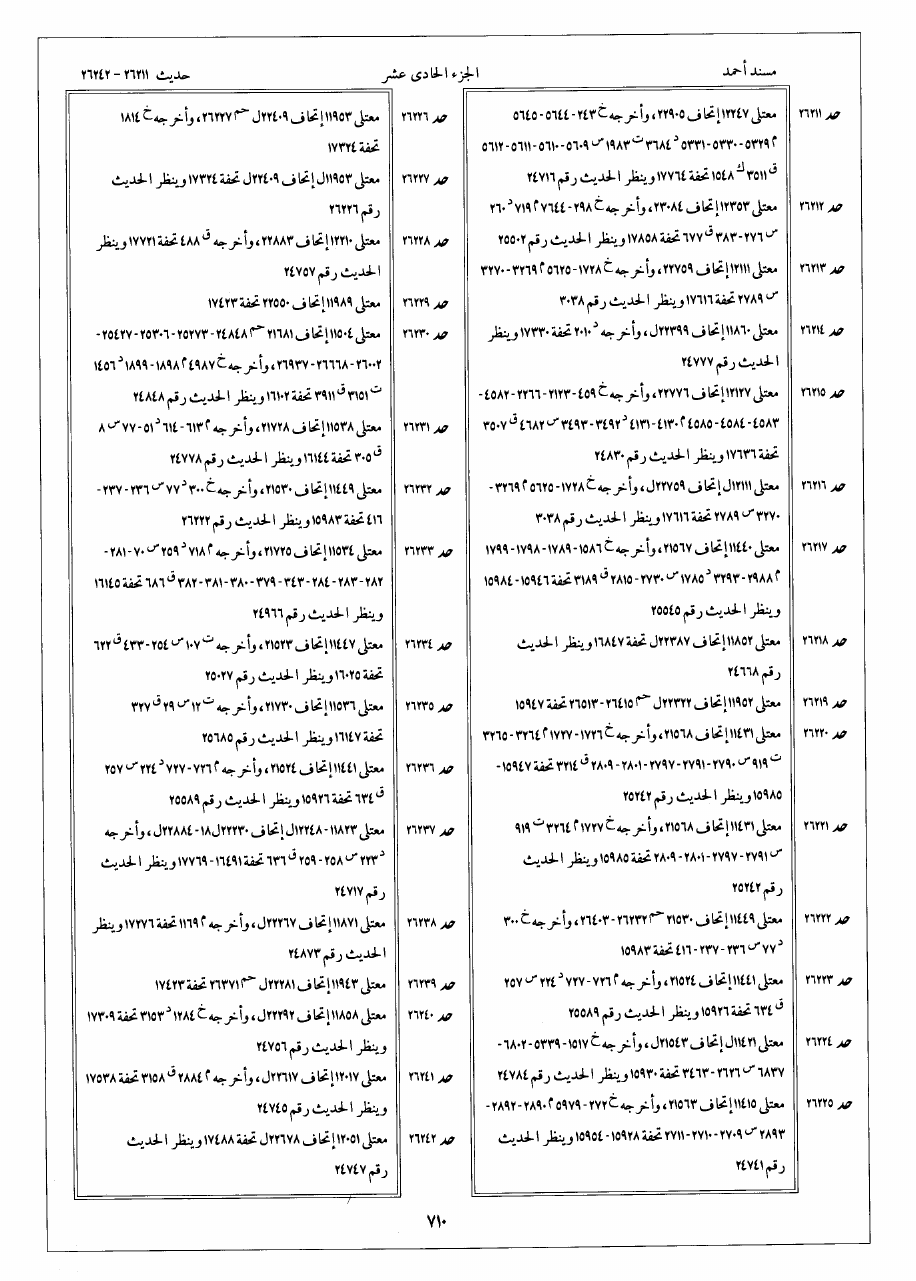 مسند أحمد
الجزء الحادى عشر
حديث ٢٦٢١١ - ٢٦٢٤٢
حد ٢٦٢١١ معتلى ١٢٢٤٧ إتحاف ٢٢٩٠٥، وأخرجه خ ٢٤٣-٥٦٤٤-٥٦٤٥
م ٥٣٢٩-٥٣٣٠-٥٣٣١ د ٣٦٨٤ ت ١٩٨٣ س ٥٦٠٩-٥٦١٠-٥٦١١-٥٦١٢
ق ٣٥١١ ك ١٥٤٨ تحفة ١٧٧٦٤ وينظر الحديث رقم ٢٤٧١٦
حد ٢٦٢١٢ معتلى ١٢٣٥٣ إتحاف ٢٣٠٨٤، وأخرجه خ ٢٩٨-٧٦٤٤ م ٧١٩ د ٢٦٠
س ٢٧٦-٣٨٣ ق ٦٧٧ تحفة ١٧٨٥٨ وينظر الحديث رقم ٢٥٥٠٢
حد ٢٦٢١٣ معتلى ١٢١١١ إتحاف ٢٢٧٥٩، وأخرجه خ ١٧٢٨-٥٦٢٥ م ٣٢٦٩-٣٢٧٠
س ٢٧٨٩ تحفة ١٧٦١٦ وينظر الحديث رقم ٣٠٣٨
حد ٢٦٢١٤ معتلى ١١٨٦٠ إتحاف ٢٢٣٩٩ل، وأخرجه د ٢٠١٠ تحفة ١٧٣٣٠ وينظر
الحديث رقم ٢٤٧٧٧
حد ٢٦٢١٥ معتلى ١٢١٢٧ إتحاف ٢٢٧٧٦، وأخرجه خ ٤٥٩-٢١٢٣-٢٢٦٦-٤٥٨٢-
٤٥٨٣-٤٥٨٤-٤٥٨٥ م ٤١٣٠-٤١٣١ د ٣٤٩٢-٣٤٩٣ س ٤٦٨٢ ق ٣٥٠٧
تحفة ١٧٦٣٦ وينظر الحديث رقم ٢٤٨٣٠
حد ٢٦٢١٦ معتلى ١٢١١١ل إتحاف ٢٢٧٥٩ل، وأخرجه خ ١٧٢٨-٥٦٢٥ م ٣٢٦٩-
٣٢٧٠ س ٢٧٨٩ تحفة ١٧٦١٦ وينظر الحديث رقم ٣٠٣٨
حد ٢٦٢١٧ معتلى ١١٤٤٠ إتحاف ٢١٥٦٧، وأخرجه خ ١٥٨٦-١٧٨٩-١٧٩٨-١٧٩٩
م ٢٩٨٨-٣٢٩٣ د ١٧٨٥ س ٢٧٣٠-٢٨١٥ ق ٣١٨٩ تحفة ١٥٩٤٦-١٥٩٨٤
وينظر الحديث رقم ٢٥٥٤٥
حد ٢٦٢١٨ معتلى ١١٨٥٢ إتحاف ٢٢٣٨٧ل تحفة ١٦٨٤٧ وينظر الحديث
رقم ٢٤٦٦٨
حد ٢٦٢١٩ معتلى ١١٩٥٢ إتحاف ٢٢٣٢٢ل حم ٢٦٤١٥-٢٦٥١٣ تحفة ١٥٩٤٧
حد ٢٦٢٢٠ معتلى ١١٤٣١ إتحاف ٢١٥٦٨، وأخرجه خ ١٧٢٦-١٧٢٧ م ٣٢٦٤-٣٢٦٥
ت ٩١٩ س ٢٧٩٠-٢٧٩١-٢٧٩٧-٢٨٠١-٢٨٠٩ ق ٣٢١٤ تحفة ١٥٩٤٧-
١٥٩٨٥ وينظر الحديث رقم ٢٥٢٤٢
حد ٢٦٢٢١ معتلى ١١٤٣١ إتحاف ٢١٥٦٨، وأخرجه خ ١٧٢٧ م ٣٢٦٤ ت ٩١٩
س ٢٧٩١-٢٧٩٧-٢٨٠١-٢٨٠٩ تحفة ١٥٩٨٥ وينظر الحديث
رقم ٢٥٢٤٢
حد ٢٦٢٢٢ معتلى ١١٤٤٩ إتحاف ٢١٥٣٠ حم ٢٦٢٣٢-٢٦٤٠٣، وأخرجه خ ٣٠٠
د ٧٧ س ٢٣٦-٢٣٧-٤١٦ تحفة ١٥٩٨٣
حد ٢٦٢٢٣ معتلى ١١٤٤١ إتحاف ٢١٥٢٤، وأخرجه م ٧٢٦-٧٢٧ د ٢٢٤ س ٢٥٧
ق ٦٣٤ تحفة ١٥٩٢٦ وينظر الحديث رقم ٢٥٥٨٩
حد ٢٦٢٢٤ معتلى ١١٤٢١ل إتحاف ٢١٥٤٣ل، وأخرجه خ ١٥١٧-٥٣٣٩-٦٨٠٢-
٦٨٣٧ س ٢٦٢٦-٣٤٦٣ تحفة ١٥٩٣٠ وينظر الحديث رقم ٢٤٧٨٤
حد ٢٦٢٢٥ معتلى ١١٤١٥ إتحاف ٢١٥٦٣، وأخرجه خ ٢٧٢-٥٩٧٩ م ٢٨٩٠-٢٨٩٢-
٢٨٩٣ س ٢٧٠٩-٢٧١٠-٢٧١١ تحفة ١٥٩٢٨-١٥٩٥٤ وينظر الحديث
رقم ٢٤٧٤١
حد ٢٦٢٢٦ معتلى ١١٩٥٣ إتحاف ٢٢٤٠٩ل حم ٢٦٢٢٧، وأخرجه خ ١٨١٤
تحفة ١٧٣٢٤
حد ٢٦٢٢٧ معتلى ١١٩٥٣ل إتحاف ٢٢٤٠٩ل تحفة ١٧٣٢٤ وينظر الحديث
رقم ٢٦٢٢٦
حد ٢٦٢٢٨ معتلى ١٢٢١٠ إتحاف ٢٢٨٨٣، وأخرجه ق ٤٨٨ تحفة ١٧٧٢١ وينظر
الحديث رقم ٢٤٧٥٧
حد ٢٦٢٢٩ معتلى ١١٩٨٩ إتحاف ٢٢٥٥٠ تحفة ١٧٤٢٣
حد ٢٦٢٣٠ معتلى ١١٥٠٤ إتحاف ٢١٦٨١ حم ٢٤٨٤٨-٢٥٢٧٣-٢٥٣٠٦-٢٥٤٢٧-
٢٦٠٠٢-٢٦٦٦٨-٢٦٩٣٧، وأخرجه خ ٤٩٨٧ م ١٨٩٨-١٨٩٩ د ١٤٥٦
ت ٣١٥١ ق ٣٩١١ تحفة ١٦١٠٢ وينظر الحديث رقم ٢٤٨٤٨
حد ٢٦٢٣١ معتلى ١١٥٣٨ إتحاف ٢١٧٢٨، وأخرجه م ٦١٣-٦١٤ د ٥١-٧٧ س ٨
ق ٣٠٥ تحفة ١٦١٤٤ وينظر الحديث رقم ٢٤٧٧٨
حد ٢٦٢٣٢ معتلى ١١٤٤٩ إتحاف ٢١٥٣٠، وأخرجه خ ٣٠٠ د ٧٧ س ٢٣٦-٢٣٧-
٤١٦ تحفة ١٥٩٨٣ وينظر الحديث رقم ٢٦٢٢٢
حد ٢٦٢٣٣ معتلى ١١٥٣٤ إتحاف ٢١٧٢٥، وأخرجه م ٧١٨ د ٢٥٩ س ٧٠-٢٨١-
٢٨٢-٢٨٣-٢٨٤-٣٤٣-٣٧٩-٣٨٠-٣٨١-٣٨٢ ق ٦٨٦ تحفة ١٦١٤٥
وينظر الحديث رقم ٢٤٩٦٦
حد ٢٦٢٣٤ معتلى ١١٤٤٧ إتحاف ٢١٥٢٣، وأخرجه ت ١٠٧ س ٢٥٤-٤٣٣ ق ٦٢٢
تحفة ١٦٠٢٥ وينظر الحديث رقم ٢٥٠٢٧
حد ٢٦٢٣٥ معتلى ١١٥٣٦ إتحاف ٢١٧٣٠، وأخرجه ت ١٢ س ٢٩ ق ٣٢٧
تحفة ١٦١٤٧ وينظر الحديث رقم ٢٥٦٨٥
حد ٢٦٢٣٦ معتلى ١١٤٤١ إتحاف ٢١٥٢٤، وأخرجه م ٧٢٦-٧٢٧ د ٢٢٤ س ٢٥٧
ق ٦٣٤ تحفة ١٥٩٢٦ وينظر الحديث رقم ٢٥٥٨٩
حد ٢٦٢٣٧ معتلى ١١٨٢٣-١٢٢٤٨ل إتحاف ٢٢٢٣٠ل١٨-٢٢٨٨٤ل، وأخرجه
د ٢٢٣ س ٢٥٨-٢٥٩ ق ٦٣٦ تحفة ١٦٤٩١-١٧٧٦٩ وينظر الحديث
رقم ٢٤٧١٧
حد ٢٦٢٣٨ معتلى ١١٨٧١ إتحاف ٢٢٢٦٧ل، وأخرجه م ١١٦٩ تحفة ١٧٢٧٦ وينظر
الحديث رقم ٢٤٨٧٣
حد ٢٦٢٣٩ معتلى ١١٩٤٣ إتحاف ٢٢٢٨١ل حم ٢٦٣٧١ تحفة ١٧٤٢٣
حد ٢٦٢٤٠ معتلى ١١٨٥٨ إتحاف ٢٢٢٩٢ل، وأخرجه خ ١٢٨٤ د ٣١٥٣ تحفة ١٧٣٠٩
وينظر الحديث رقم ٢٤٧٥٦
حد ٢٦٢٤١ معتلى ١٢٠١٧ إتحاف ٢٢٦١٧ل، وأخرجه م ٢٨٨٤ ق ٣١٥٨ تحفة ١٧٥٣٨
وينظر الحديث رقم ٢٤٧٤٥
حد ٢٦٢٤٢ معتلى ١٢٠٥١ إتحاف ٢٢٦٧٨ل تحفة ١٧٤٨٨ وينظر الحديث
رقم ٢٤٧٤٧
٧١٠